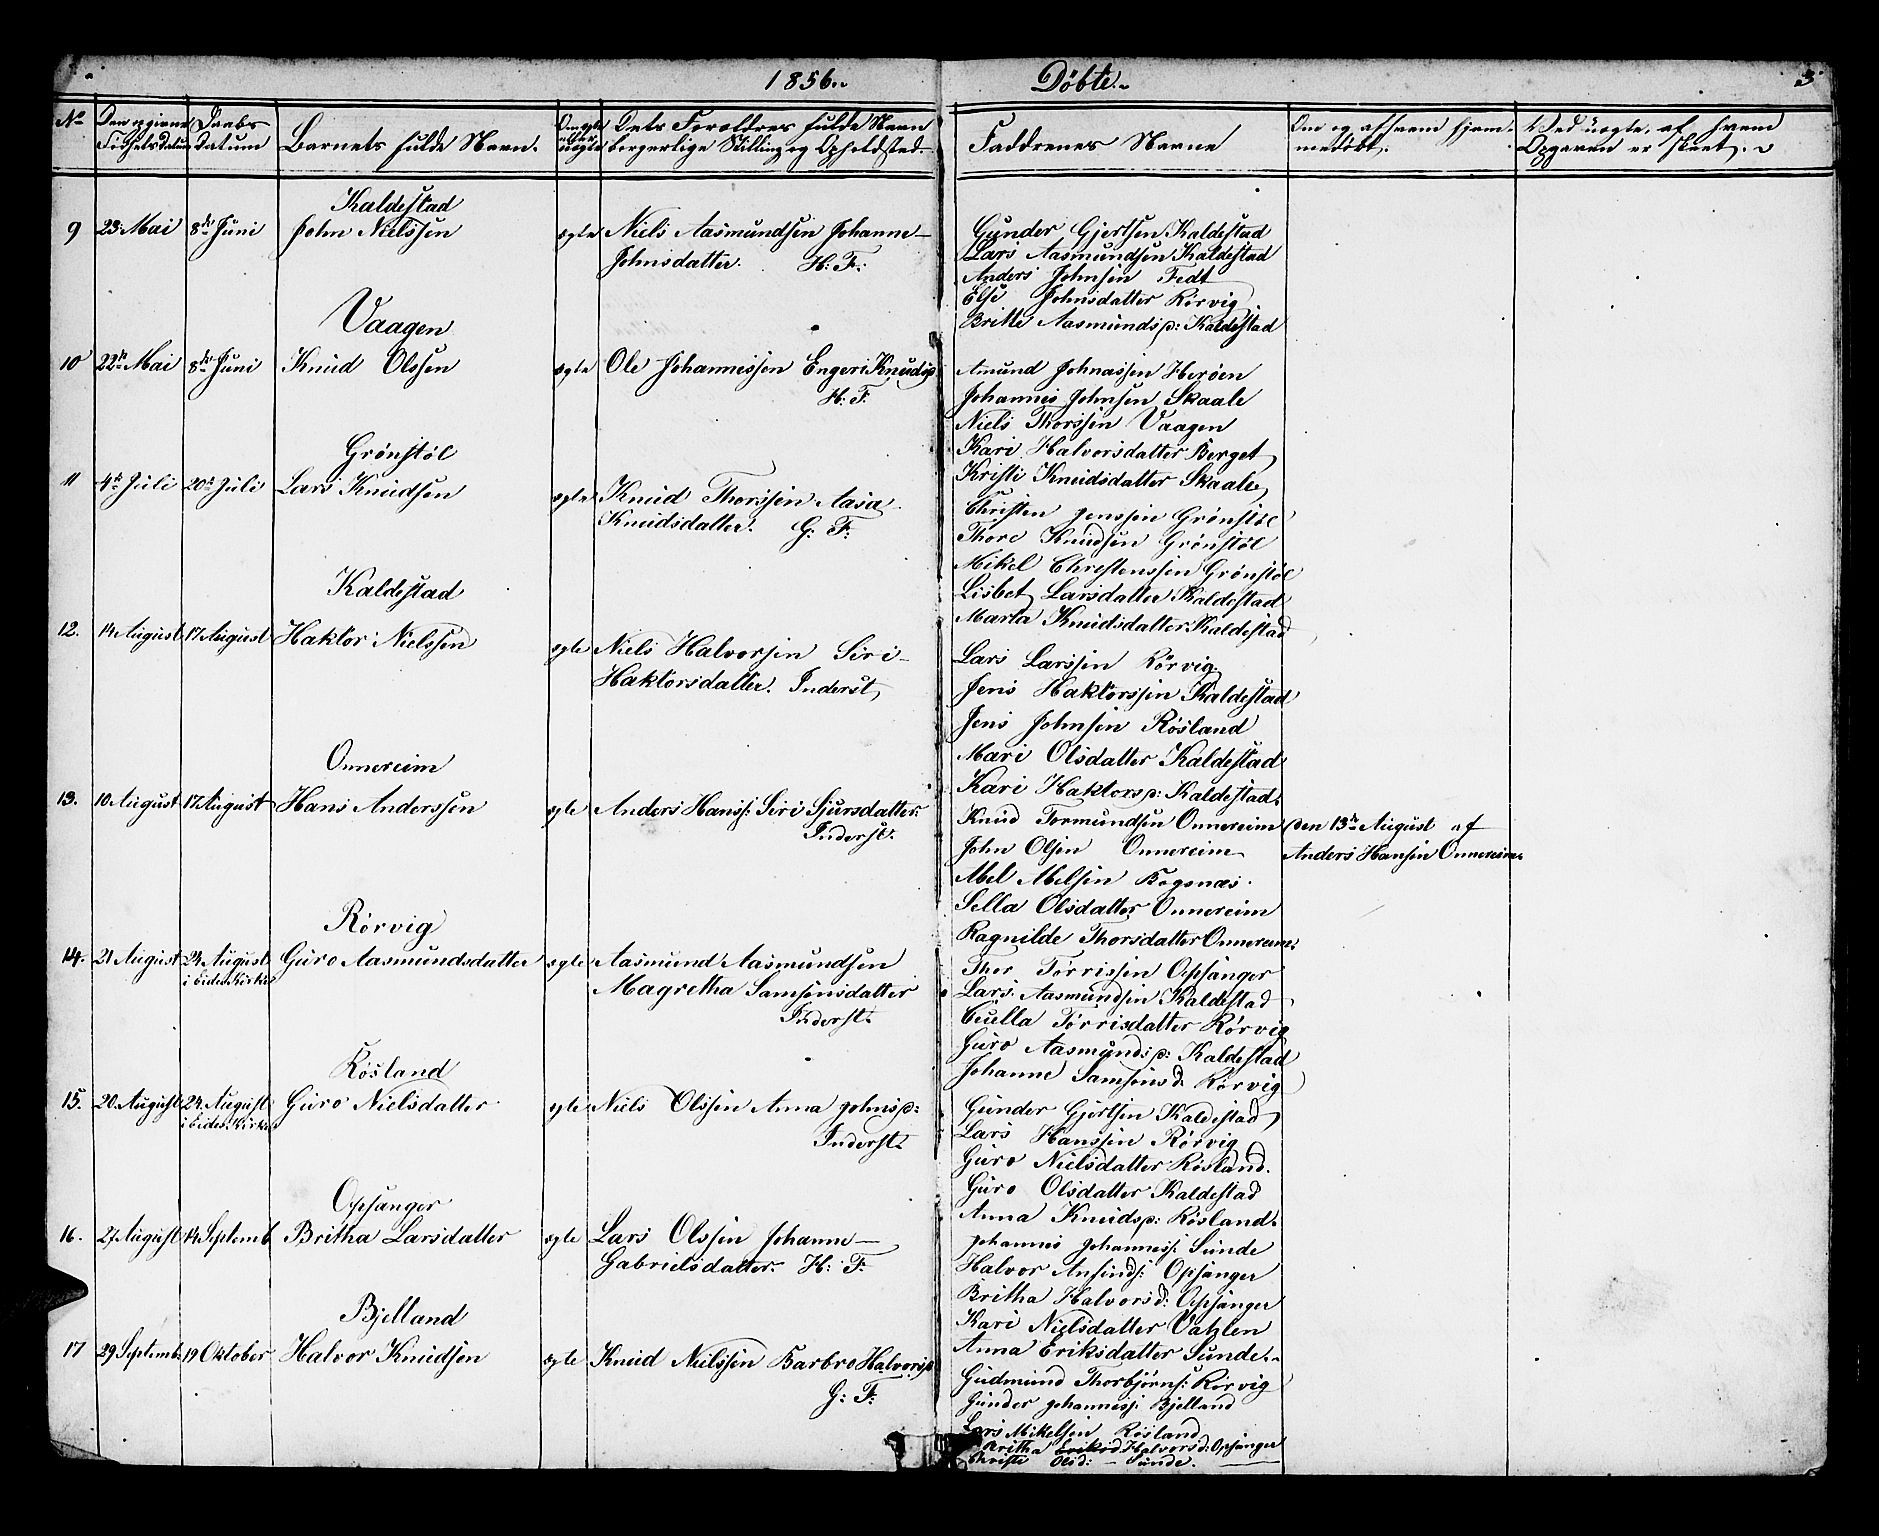 1856.
Döbte.
3
No
Den opgivne Födselsdatum
Daabs Datum
Barnets fulde Navn.
Om ægte eller uægte
Dets Foraldres fulde Navn borgerlige Stilling og Opholdsted.
Faddrenes Navne
Om og af hvem hjemmedöbt.
Ved uægte, af hvem Opgaven er skeet.
Kaldestad
9 23 Mai 8de Juni John Nielssen ægte Niels Aasmundsen Johanne
Johnsdatter. H: F:
Gunder Gjertsen Kaldestad
Lars Aasmundsen Kaldestad
Anders Johnsen Fedt
Else Johnsdatter Rörvig
Britte AasmundsD: Kaldestad
Vaagen
10 22de Mai 8de Juni Knud Olssen ægte Ole Johannissen Engeri KnudsD
H: F.
Amund Johnassen Heröen
Johannis Johnsen Skaale
Niels Thorssen Vaagen
Kari Halvorsdatter Berget
Kristi Knudsdatter Skaale
Grönstöl
11 4de Juli 20de Juli Lars Knudsen ægte Knud Thorssen Aasa
Knudsdatter. G: F:
Christen Jenssen Grönstöl
Thore Knudsen Grönstöl
Mikel Christenssen Grönstöl
Lisbet Larsdatter Kaldestad
Marta Knudsdatter Kaldestad
Kaldestad
12. 14 August 17 August Haktor Nielssen ægte Niels Halvorsen Siri
Haktorsdatter. Inderst
Lars Larssen Rörvig
Jens Haktorssen Kaldestad
Jens Johnsen Rösland
Mari Olsdatter Kaldestad
Kari HaktorsD: Kaldestad.
Onnereim
13. 10 August 17 August Hans Anderssen ægte Anders Hanss: Siri Sjursdatter
Inderst.
Knud Tormundsen Onnereim
den 13de August af
John Olsen Onnereim
Anders Hansen Onnereim
Mel Melsen Bogsnæs.
Sella Olsdatter Onnereim
Ragnilde Thorsdatter Onnereim.
Rörvig
14. 21 August 24 August Guro Aasmundsdatter ægte Aasmund Aasmundsen
i Eides Kirke Magretha Samsonsdatter
Inderst.
Thor Törrissen Opsanger
Lars Aasmundsen Kaldestad
Cicella Törrisdatter Rörvig
Guro AasmundsD: Kaldestad
Johanne SamsonsD. Rörvig
Rösland
15. 20. August 24. August Guro Nielsdatter ægte Niels Olssen Anna JohnsD:
i Eides Kirke Inderst.
Gunder Gjertsen Kaldestad
Lars Hanssen Rörvig
Guro Nielsdatter Rösland.
Guro Olsdatter Kaldestad
Anna KnudsD: Rösland.
Opsanger
16. 27 August 14 Septemb Britha Larsdatter ægte Lars Olssen Johanne
Gabrielsdatter. H: F.
Johannes Johanness: Sunde
Halvor Opsanger
Britha Halvorsd: Opsanger
Kari Nielsdatter Valen
Anna Eriksdatter Sunde.
Bjelland
17 29 Septemb. 19 Oktober Halvor Knudsen ægte Knud Nielssen Barbro HalvorsD
G: F:
Gudmund Thorbjörns: Rörvig
Gunder Johanness: Bjelland
Lars Mikelsen Rösland
Britha Eriksd Halvorsd: Opsanger
Christi Olsd: Sunde.